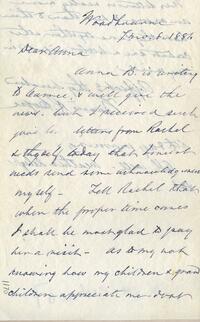 Dear Anna
Anna B. is writing
to Aunnie & will give the
news. but I received such
letters from Rachel
& thyself today that I must
needs send some acknowledgment
myself - Tell Rachel that
when the proper time comes
I shall be most glad to pay
her a visit - as to my not
knowing how my children & grand
children appreciate me dont